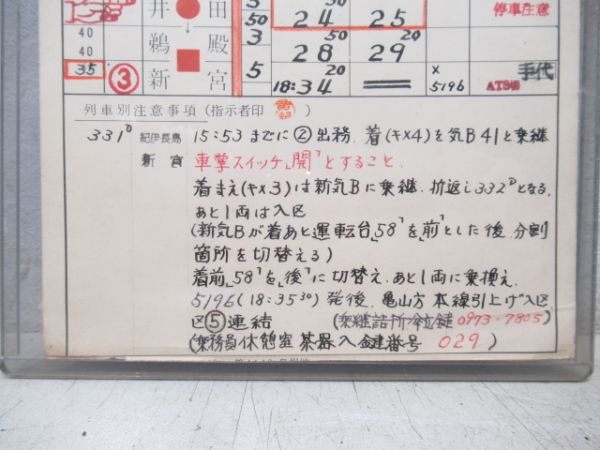 井 田 30 停車注意
50 24 25
40 鵜 殿 3 50 20
40 28 29
35 ③ 新 宮 5 20 × 手代
18:34 5196 ATS㊞
列車別注意事項 (指示者印 )
331D 紀伊長島 15:53 までに②出務. 着(キ×4)を気B41と乗継
新宮 車掌スイッチ「開」とすること.
着まえ(キ×3)は新気Bに乗継. 折返し332Dとなる.
あと1両は入区
(新気Bが着あと運転台「58」を「前」とした後. 分割
箇所を切替える)
着前「58」を「後」に切替え. あと1両に乗換え.
5196(18:35 30)発後. 亀山方 本線引上げ入区
区⑤連結 (乗継詰所 鍵 0973・7805)
(乗務員休憩室 茶器入 鍵番号 029)